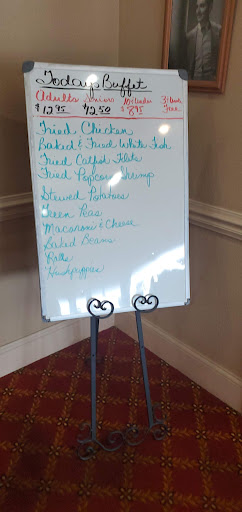 Today's Buffet
Adults Seniors 10 & Under 3 & Under
$12.95 12.50 $8.95 Free
Fried Chicken
Baked & Fried White Fish
Fried Catfish Filets
Fried Popcorn Shrimp
Stewed Potatoes
Green Peas
Macaroni & Cheese
Baked Beans
Rolls
Hushpuppies